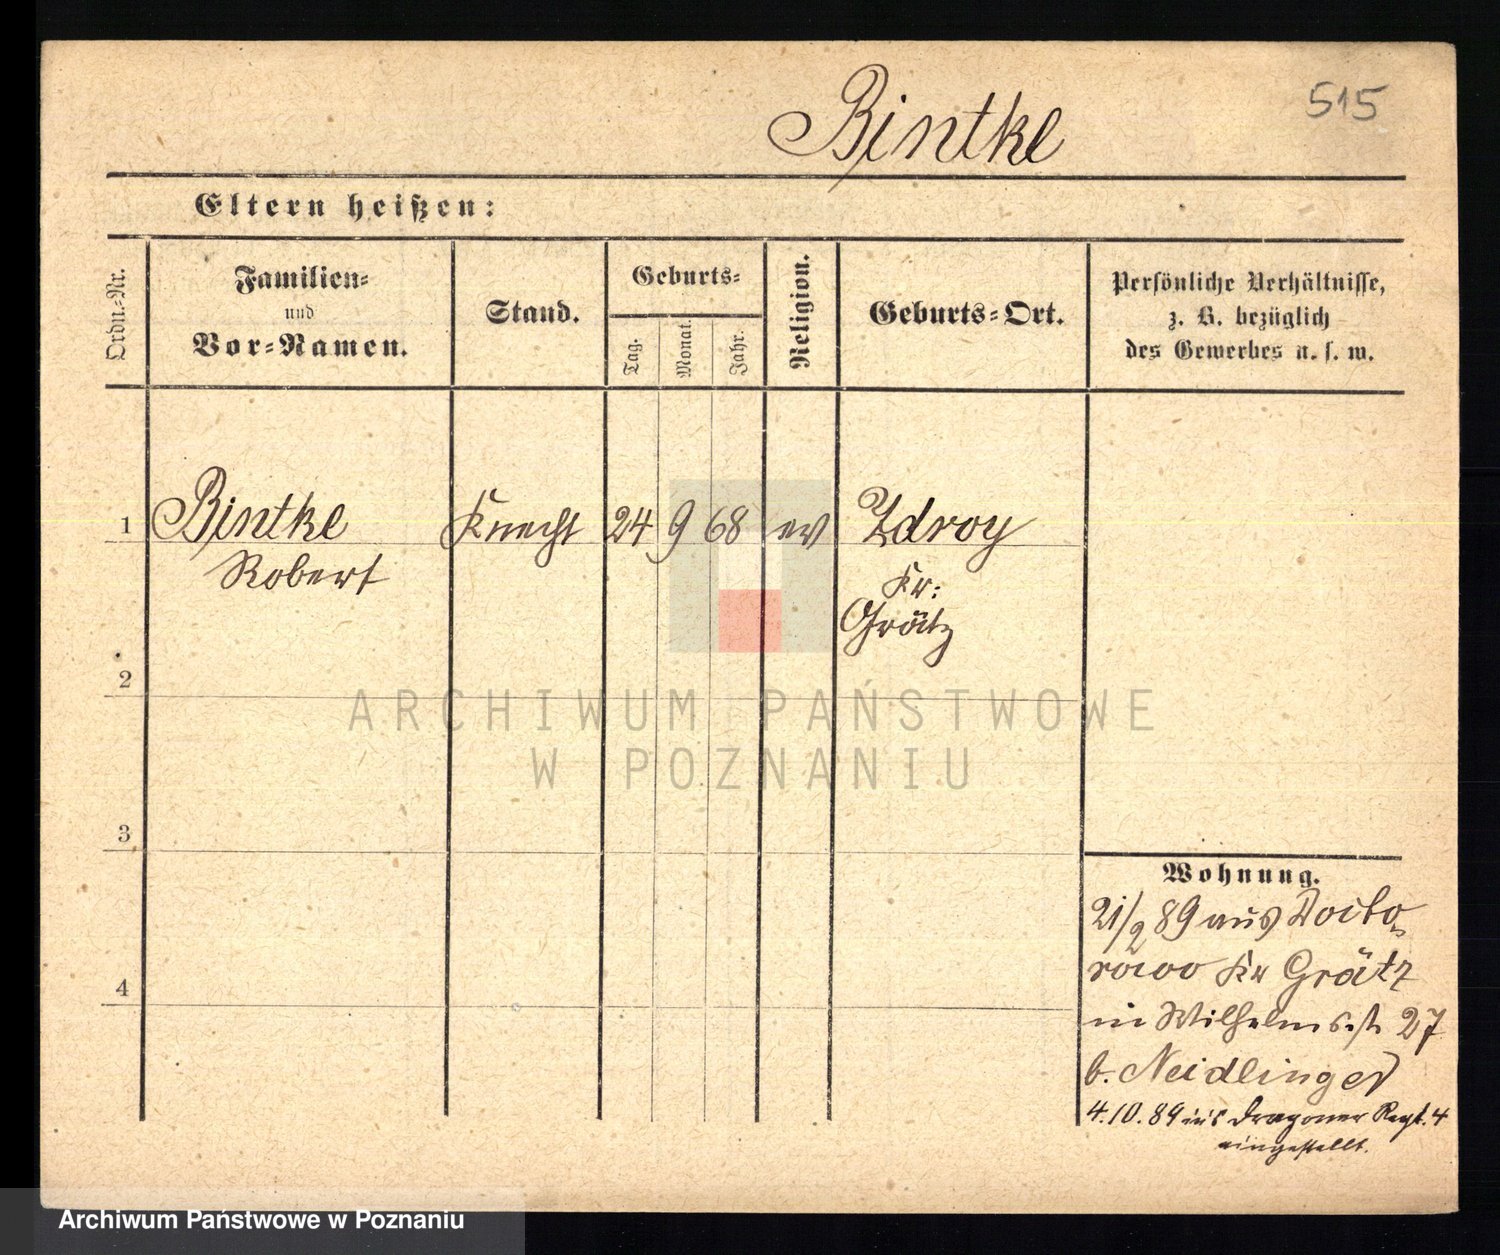 Bintke
515
Eltern heißen:
Ordn.-Nr.
Familien-
und
Vor-Namen.
Stand.
Geburts-
Tag.
Monat.
Jahr.
Religion.
Geburts-Ort.
Persönliche Verhältnisse,
z. B. bezüglich
des Gewerbes u. s. w.
1 Bintke Knecht 24 9 68 ev Zdroy
Robert Kr:
Grätz
2
3
4
Wohnung.
21/9 89 aus
Kr Grätz
in Wilhelmsst 27
b. Neidlinger
4.10.89 ins Dragoner Regt. 4
eingestellt.
ARCHIWUM PAŃSTWOWE
W POZNANIU
Archiwum Państwowe w Poznaniu